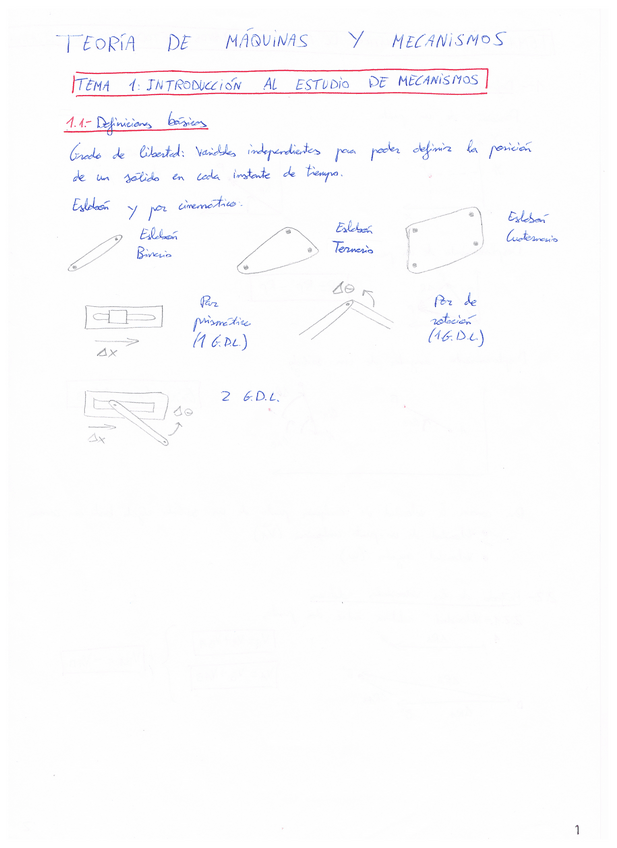 TEORÍA DE MÁQUINAS Y MECANISMOS
TEMA 1: INTRODUCCIÓN AL ESTUDIO DE MECANISMOS
1.1.- Definiciones básicas
Grado de libertad: Variables independientes para poder definir la posición
de un sólido en cada instante de tiempo.
Eslabón y par cinemático:
Eslabón
Binario
Eslabón
Ternario
Eslabón
Cuaternario
Par
prismático
(1 G.D.L.)
Δx
Δθ
Par de
rotación
(1 G.D.L)
2 G.D.L.
Δθ
Δx
1